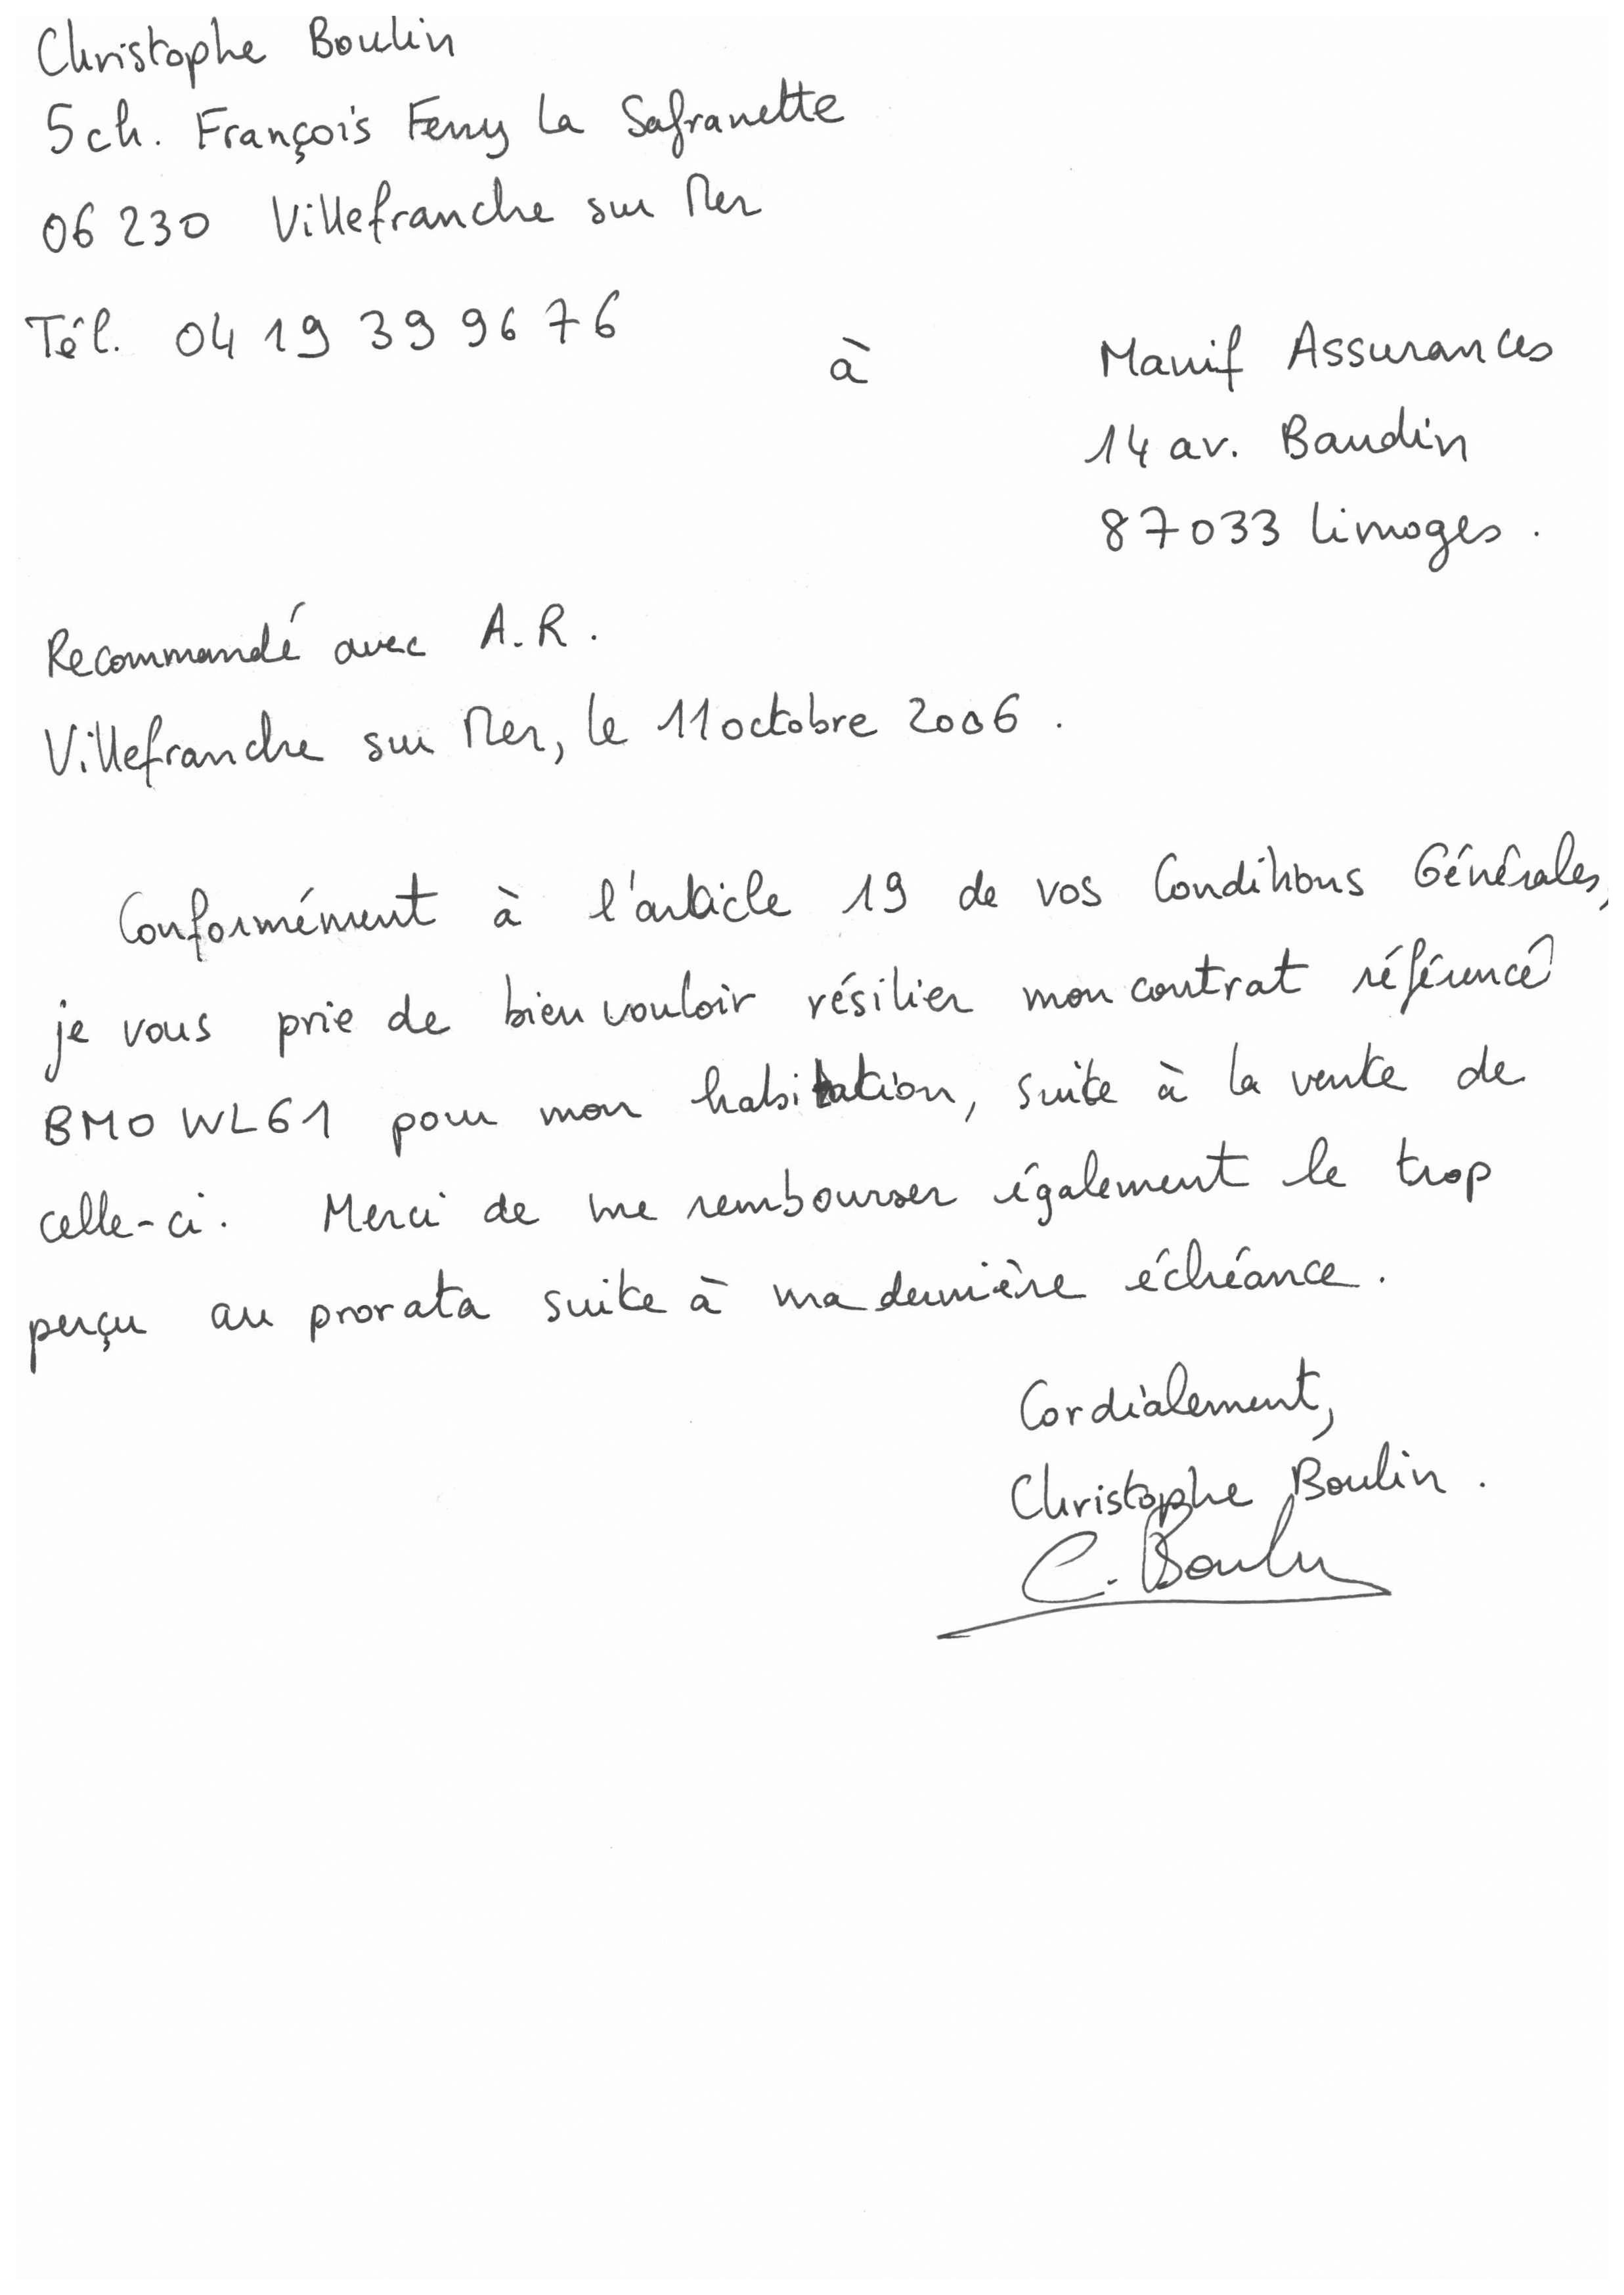 Christophe Boulin
5 ch. François Ferry La Safranette
06 230 Villefranche sur Mer
Tél. 04 19 39 96 76
à
Manif Assurances
14 av. Baudin
87033 Limoges.
Recommandé avec A.R.
Villefranche sur Mer, le 11 octobre 2006.
Conformément à l'article 19 de vos Conditions Générales,
je vous prie de bien vouloir résilier mon contrat référencé
BMOWL61 pour mon habitation, suite à la vente de
celle-ci. Merci de me rembourser également le trop
perçu au prorata suite à ma dernière échéance.
Cordialement,
Christophe Boulin.
C. Boulin